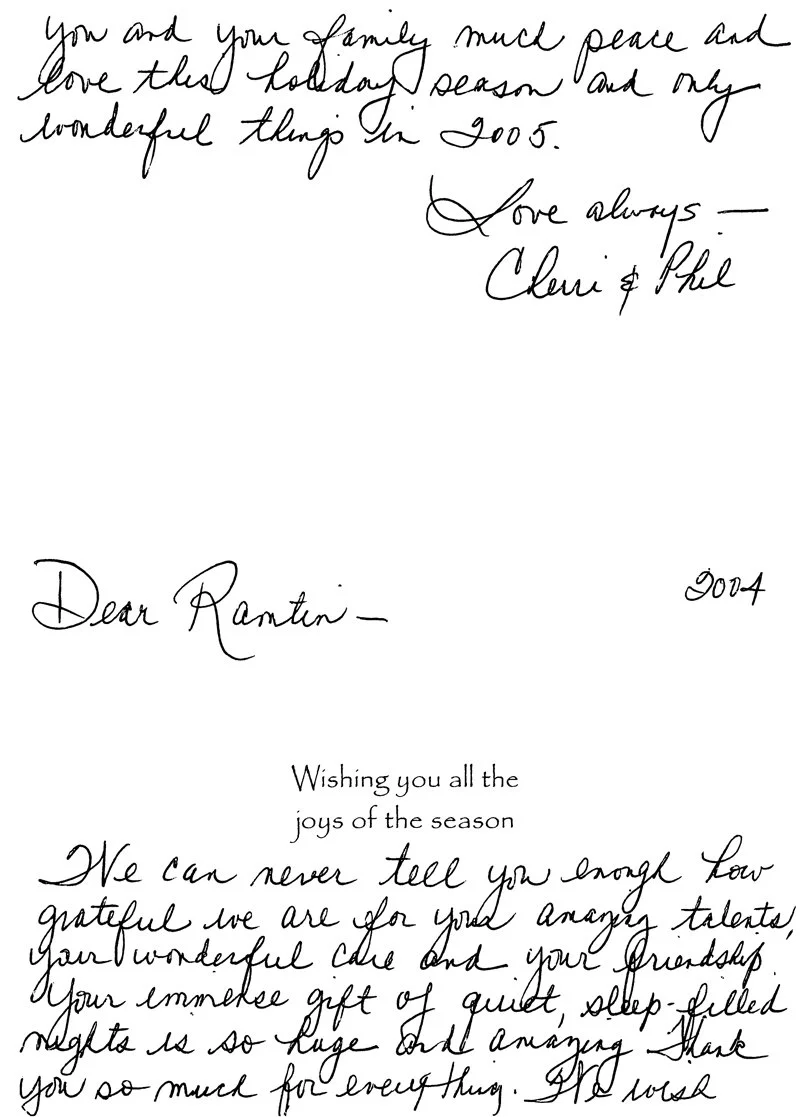 you and your family much peace and
love this holiday season and only
wonderful things in 2005.
Love always —
Cherri & Phil
Dear Ramtin — 2004
Wishing you all the
joys of the season
We can never tell you enough how
grateful we are for your amazing talents,
your wonderful care and your friendship.
Your immense gift of quiet, sleep-filled
nights is so huge and amazing Thank
you so much for everything. We wish